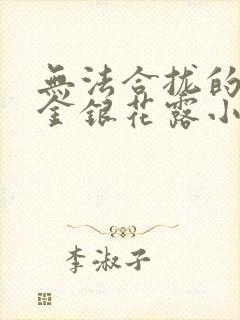 無法合拢的
金銀花露小
李淑子